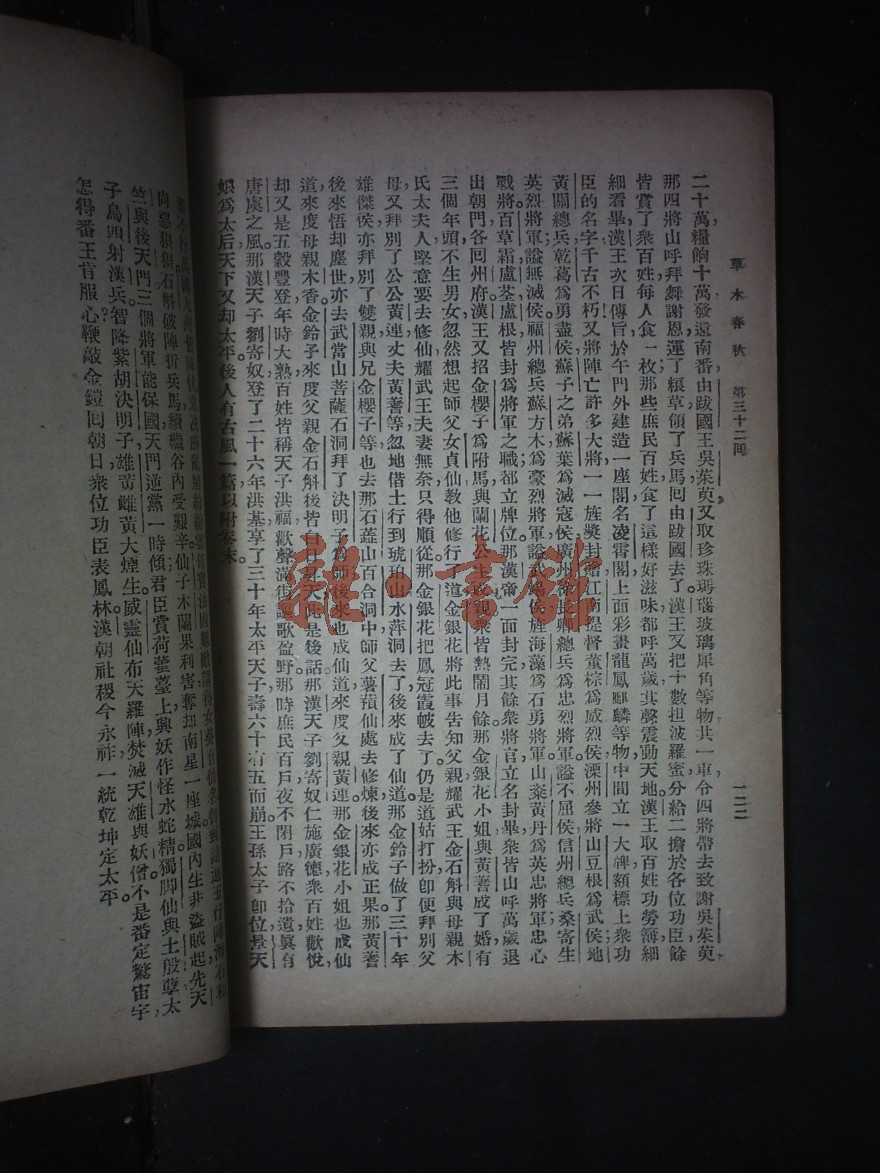 草木春秋 第三十二囘 一二二
二十萬糧餉十萬發還南番由跋國王吳茱萸又取珍珠瑪瑙玻璃犀角等物共一車令四將帶去致謝吳茱萸
那四將山呼拜舞謝恩運了糧草領了兵馬囘由跋國去了漢王又把十數担波羅蜜分給二擔於各位功臣餘
皆賞了衆百姓每人食一枚那些庶民百姓食了這樣好滋味都呼萬歲其聲震動天地漢王取百姓功勞簿細
細看畢漢王次日傳旨於午門外建造一座閣名凌霄閣上面彩畫龍鳳麒麟等物中間立一大碑額標上衆功
臣的名字千古不朽又將陣亡許多大將一一旌獎封贈江南提督董棕爲威烈侯溧州參將山豆根爲武侯地
黃關總兵乾葛爲勇盡侯蘇子之弟蘇葉爲滅寇侯廣州徐長卿總兵爲忠烈將軍謚不屈侯信州總兵桑寄生
英烈將軍謚無滅侯福州總兵蘇方木爲豪烈將軍謚武侯旌海藻爲石勇將軍山柰黃丹爲英忠將軍忠心
戰將百草霜盧荃盧根皆封爲將軍之職都立牌位那漢帝一面封完其餘衆將官立名封畢衆皆山呼萬歲退
出朝門各囘州府漢王又招金櫻子爲附馬與蘭花公主成親衆皆熱鬧月餘那金銀花小姐與黃蓍成了婚有
三個年頭不生男女忽然想起師父女貞仙教他修行了道金銀花將此事告知父親耀武王金石斛與母親木
氏太夫人堅意要去修仙耀武王夫妻無奈只得順從那金銀花把鳳冠霞帔去了仍是道姑打扮卽便拜別父
母又拜別了公公黃連丈夫黃蓍等忽地借土行到琥珀山水萍洞去了後來成了仙道那金鈴子做了三十年
雄傑侯亦拜別了雙親與兄金櫻子等也去那石蓮山百合洞中師父薯蕷仙處去修煉後來亦成正果那黃蓍
後來悟却塵世亦去武當山菩薩石洞拜了決明子爲師後來也成仙道來度父親黃連那金銀花小姐也成仙
道來度母親木香金鈴子來度父親金石斛後皆白日昇天此是後話那漢天子劉寄奴仁施廣德衆百姓歡悅
却又是五穀豐登年時大熟百姓皆稱天子洪福歡聲滿街謳歌盈野那時庶民百戶夜不閉戶路不拾遺眞有
唐虞之風那漢天子劉寄奴登了二十六年洪基享了三十年太平天子壽六十有五而崩王孫太子卽位景天
娘爲太后天下又却太平後人有古風一篇以附卷末
尙惡狼狽石斛破陣折兵馬續檻谷內受艱辛仙子木蘭果利害奪却南星一座城國內生非盜賊起先天
竺與後天門三個將軍能保國天門逆黨一時傾君臣賞荷藁臺上興妖作怪水蛇精獨脚仙與土股孽太
子烏頭射漢兵智降紫胡決明子雄黃雌黃大煙生威靈仙布天羅陣焚滅天雄與妖僧不是番定驚宙宇
怎得番王肯服心鞭敲金鐙囘朝日衆位功臣表鳳林漢朝社稷今永祚一統乾坤定太平
雜·書館